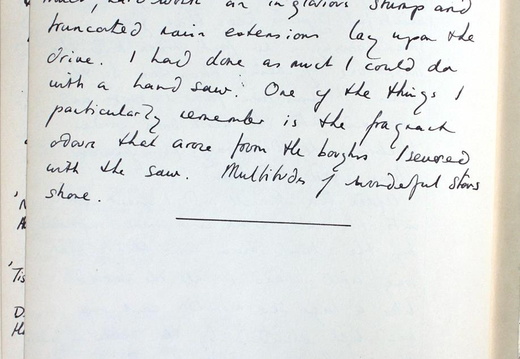 an inglorious stump and
truncated main extensions lay upon the
drive. I had done as much I could do
with a hand saw. One of the things I
particularly remember is the fragrant
odour that arose from the boughs I severed
with the saw. Multitudes of wonderful stars
shone.
'Tis